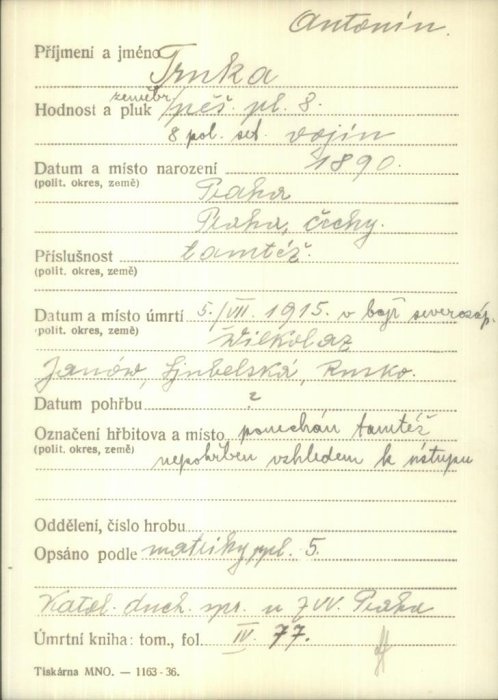 Antonín.
Příjmení a jméno Trnka
zeměbr.
Hodnost a pluk pěš. pl. 8.
8 pol. set. vojín
Datum a místo narození 1890.
(polit. okres, země) Praha
Praha, Čechy.
Příslušnost tamtéž.
(polit. okres, země)
Datum a místo úmrtí 5./VII. 1915. v boji severozáp.
(polit. okres, země) Wilkolaz
Janów, Ljubelská, Rusko.
Datum pohřbu ?
Označení hřbitova a místo ponechán tamtéž
(polit. okres, země) nepohřben vzhledem k ústupu
Oddělení, číslo hrobu
Opsáno podle matriky, pl. 5.
Katol. duch. spr. u ZVV. Praha
Úmrtní kniha: tom., fol. IV. 77.
Tiskárna MNO. — 1163-36.